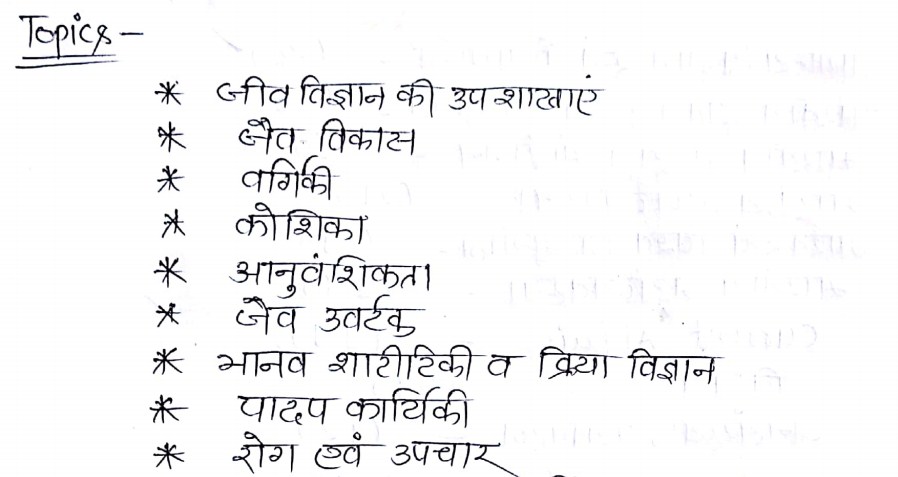 Topics -
* जीव विज्ञान की उपशाखाएं
* जैव विकास
* वर्गिकी
* कोशिका
* आनुवंशिकता
* जैव उर्वरक
* मानव शारीरिकी व क्रिया विज्ञान
* पादप कार्यिकी
* रोग एवं उपचार